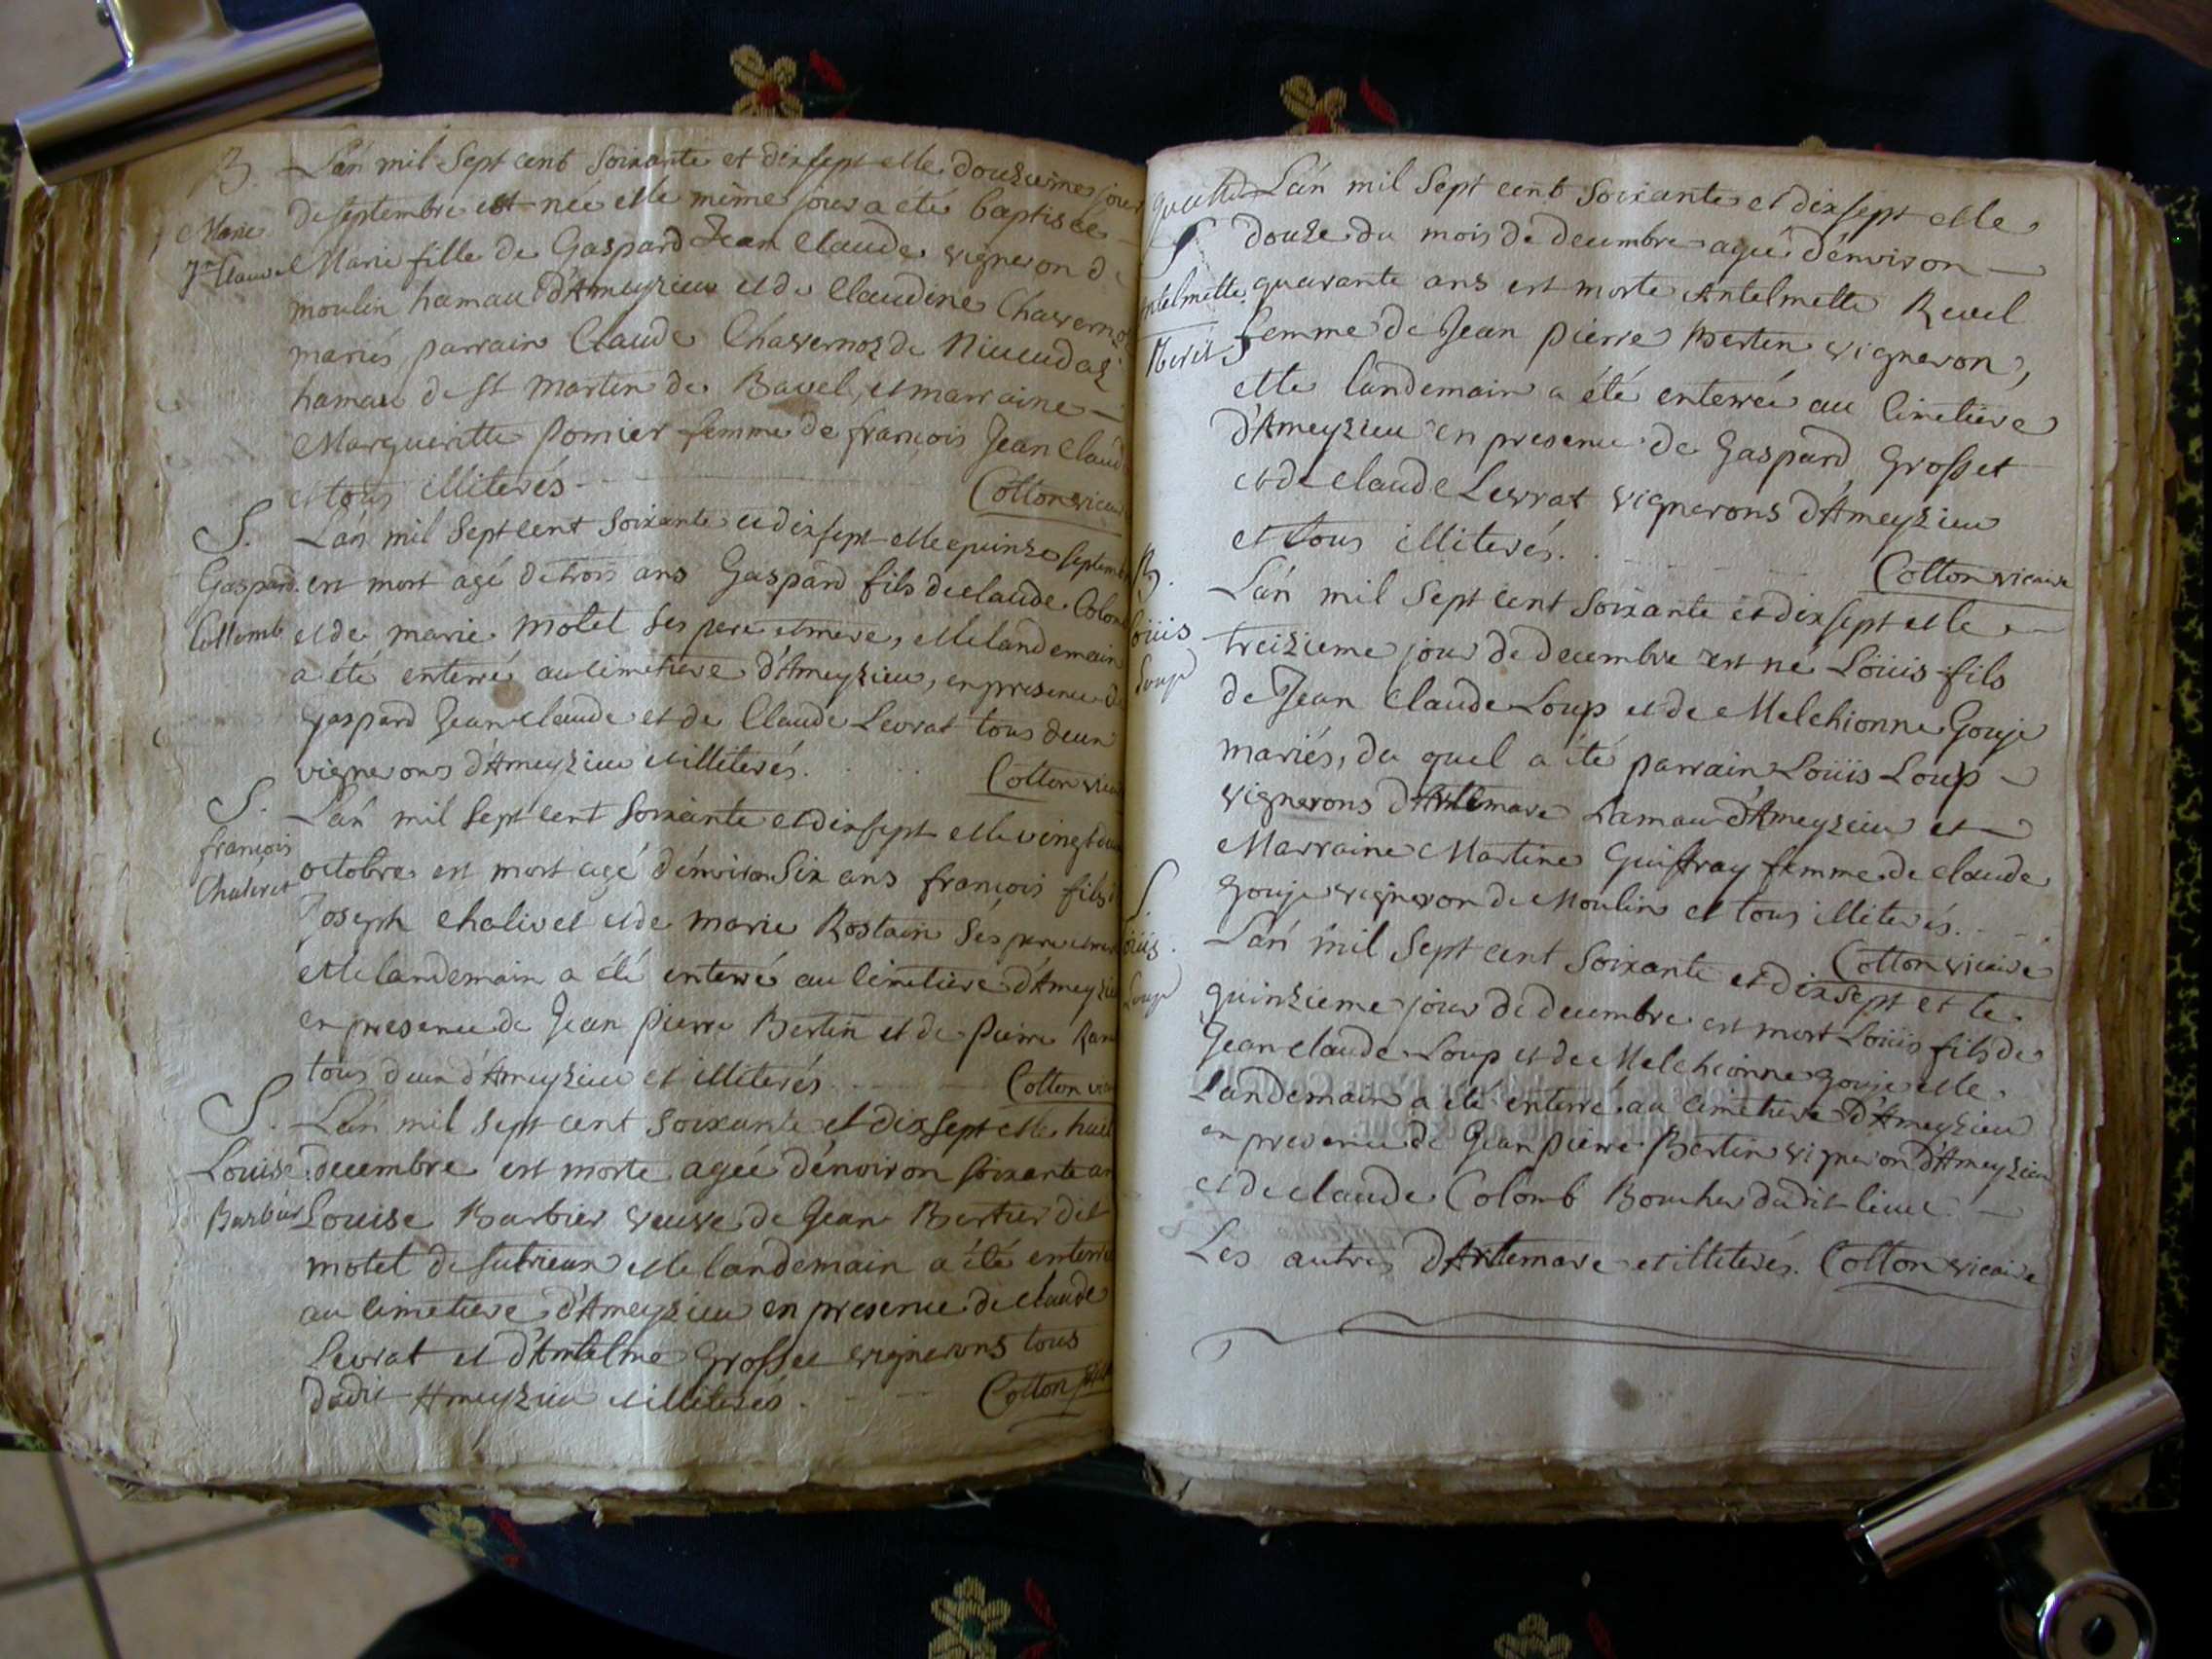 B.
Marie
Jn Claude
L'an mil Sept cent Soixante et dixsept et le douzieme jour
de septembre est née et le même jour a été baptisée
Marie fille de Gaspard Jean Claude vigneron de
moulin hamau d'Ameyzieu et de Claudine Chavernoz
mariés, parrain Claude Chavernoz de
hamau de St Martin de Bavel, et marraine
Margueritte Pomier femme de françois Jean Claud
et tous illiterés
Cotton vicaire
S.
Gaspard
Collomb
L'an mil Sept cent Soixante et dixsept et le quinze septemb
est mort agé de trois ans Gaspard fils de Claude Colom
et de marie motet ses pere et mere, et le landemain
a été enterré au cimetiere d'Ameyzieu, en presence de
gaspard Jean claude et de Claude Levrat tous deux
vignerons d'Ameyzieu et illiterés.
Cotton vicai
S.
françois
Chalivet
L'an mil Sept cent Soixante et dixsept et le vingt
octobre est mort agé d'environ Six ans françois fils d
Joseph chalivet et de marie Rostain Ses pere et mere
et le landemain a été enterré au cimetiere d'Ameyzieu
en presence de Jean pierre Bertin et de pierre
tous deux d'Ameyzieu et illiterés
Cotton vic
S.
Louise
Barbier
L'an mil Sept cent Soixante et dixsept et le huit
decembre est morte agée d'environ soixante an
Louise Barbier veuve de Jean Bertier dit
motet de sutrieux et le landemain a été enterré
au cimetiere d'Ameyzieu en presence de claude
Levrat et d'Antelme Grosset vignerons tous
dudit Ameyzieu et illiterés.
Cotton
S
Antelmette
L'an mil Sept cent Soixante et dixsept et le
douze du mois de decembre agée d'environ
quarante ans est morte Antelmette Revel
femme de Jean pierre Bertin vigneron,
et le landemain a été enterrée au cimetiere
d'Ameyzieu en presence de Gaspard Grosset
et de claude Levrat vignerons d'Ameyzieu
et tous illiterés.
Cotton vicaire
B.
Loüis
Loup
L'an mil Sept cent Soixante et dixsept et le
treizieme jour de decembre est né Loüis fils
de Jean Claude Loup et de Melchionne Gouje
mariés, du quel a été parrain Loüis Loup
vignerons d'Artemare hamau d'Ameyzieu et
Marraine Martine Guiffray femme de claude
gouje vigneron de Moulin et tous illiterés.
Cotton vicaire
S.
Loüis
Loup
L'an mil Sept cent Soixante et dixsept et le
quinzieme jour de decembre est mort Loüis fils de
Jean claude Loup et de Melchionne gouje et le
Landemain a été enterré au cimetiere d'Ameyzieu
en presence de Jean pierre Bertin vigneron d'Ameyzieu
et de claude Colomb Boucher dudit lieu
Les autres d'Artemare et illiterés. Cotton vicaire